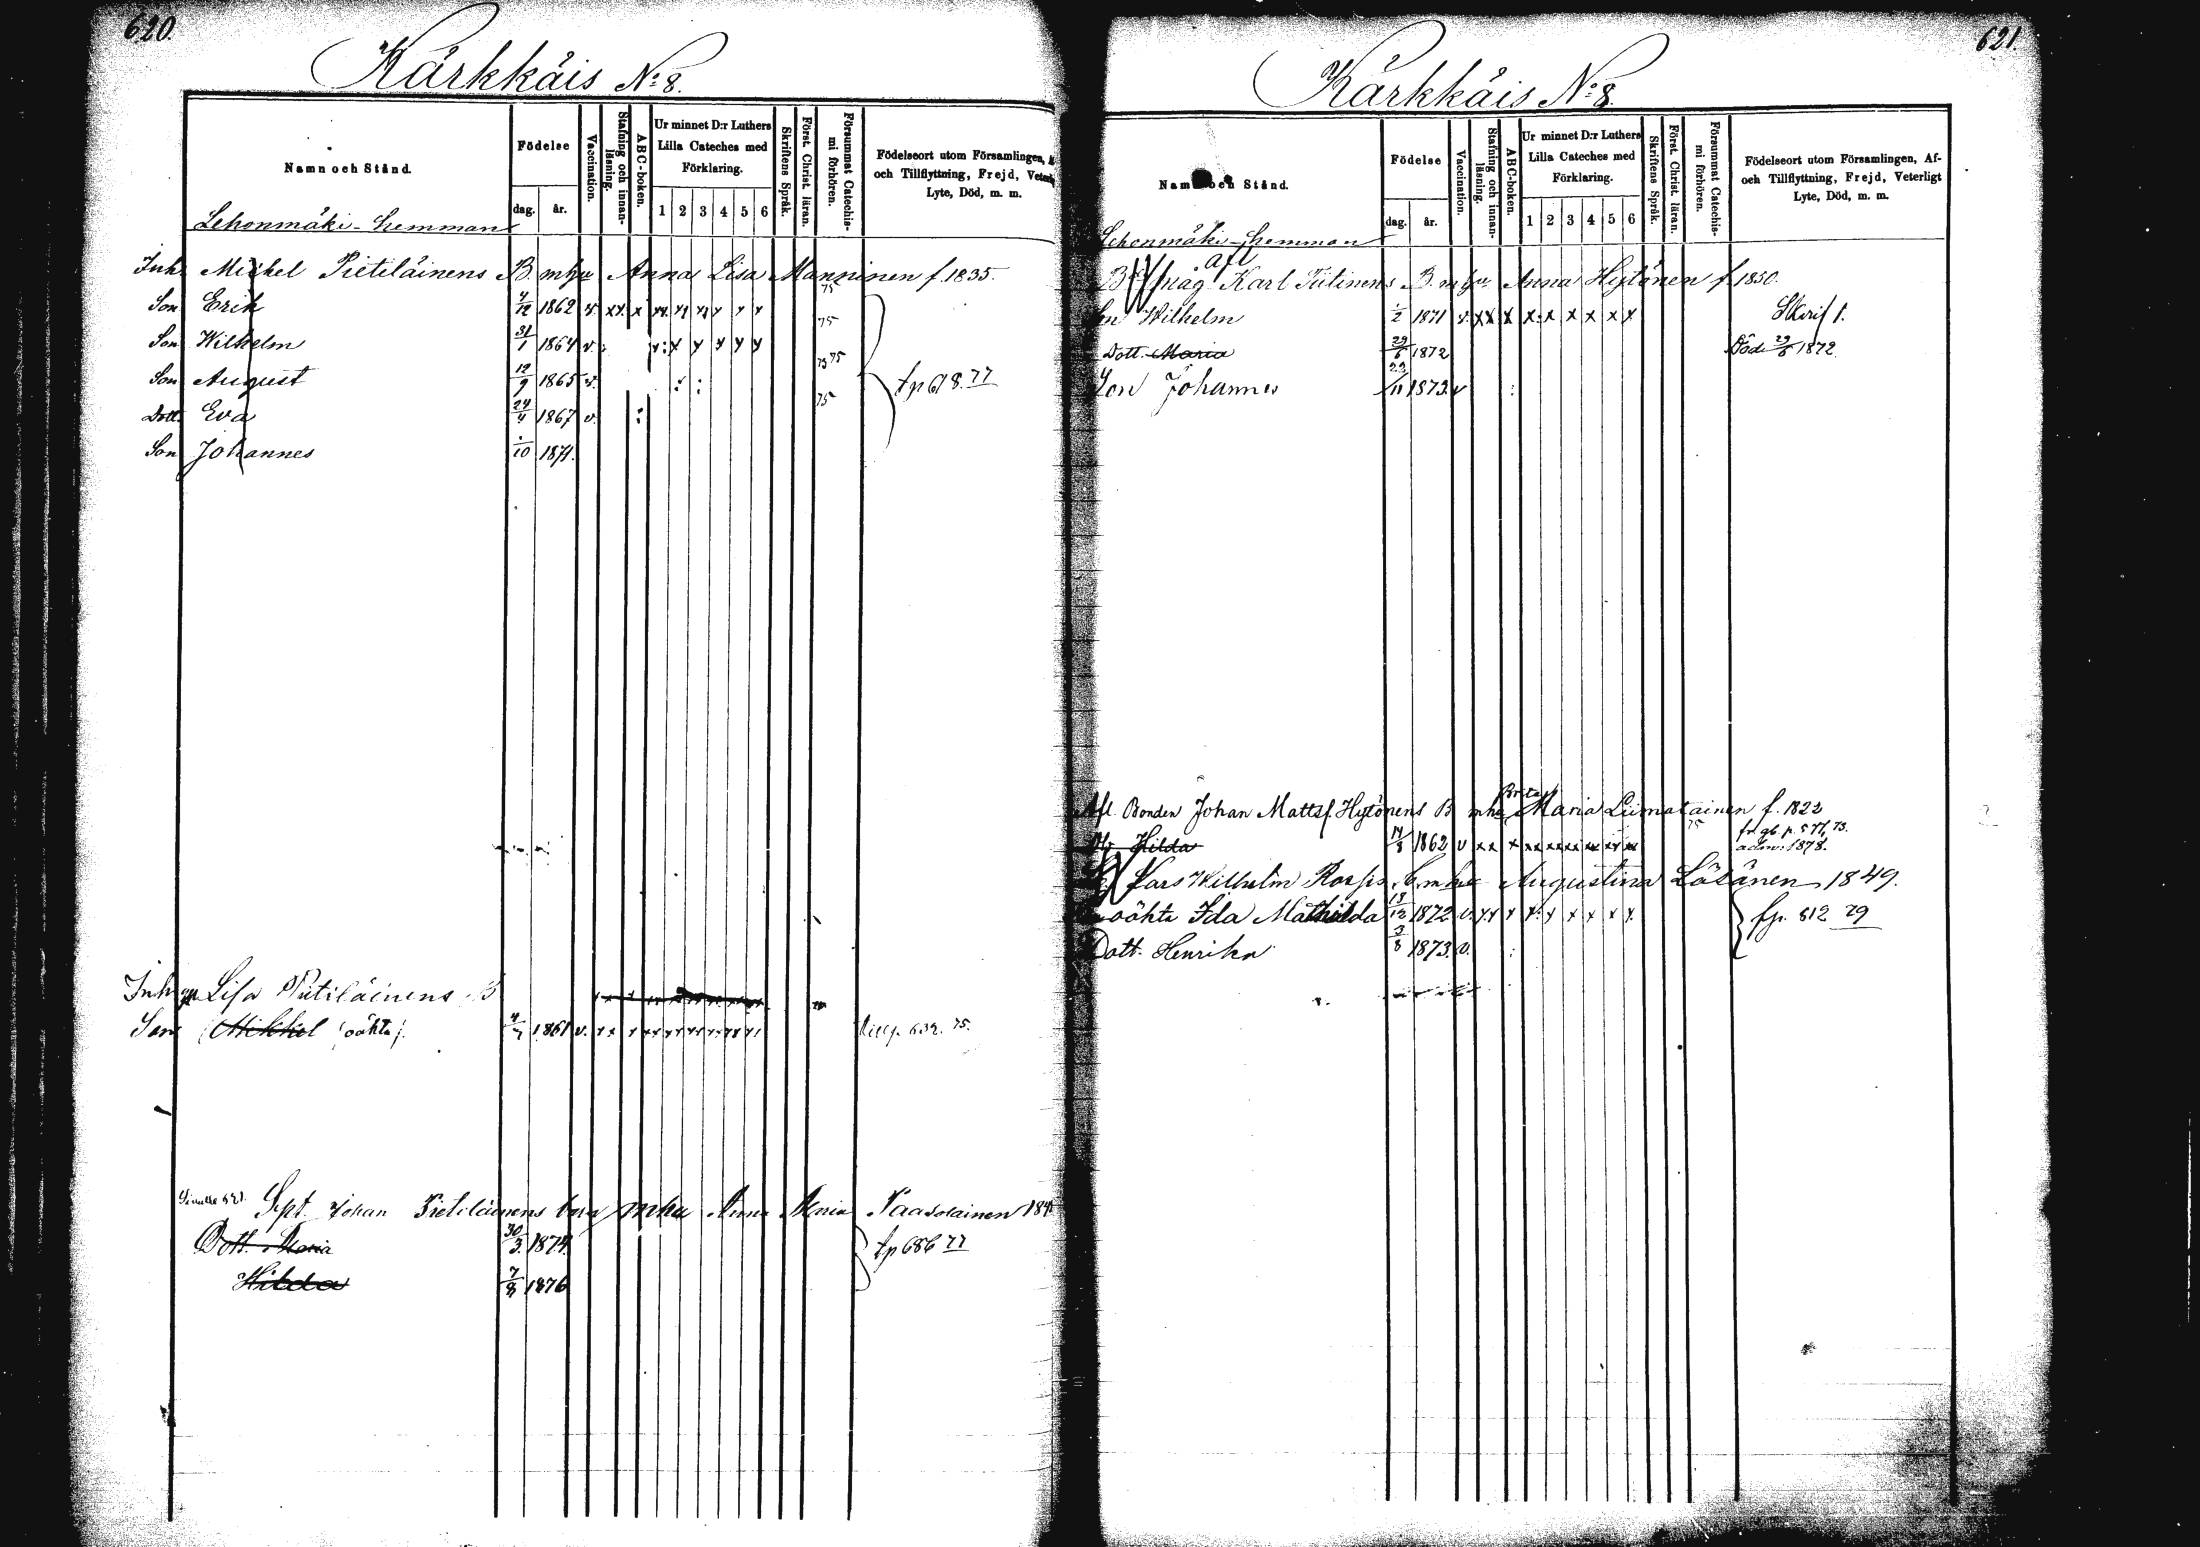 620.
Kärkkäis No 8.
Namn och Stånd.
Födelse
dag. år.
Vaccination.
Stafning och innan-läsning.
ABC-boken.
Ur minnet D:r Luthers
Lilla Cateches med
Förklaring.
1 2 3 4 5 6
Skriftens Språk.
Först. Christ. läran.
Försummat Catechis-
mi förhören.
Födelseort utom Församlingen,
och Tillflyttning, Frejd,
Lyte, Död, m. m.
Lehonmäki-hemman
Inh. Michel Pietiläinens B. mhu Anna Lisa Manninen f. 1835.
Son Erik 4/12 1862 v. xx x 75
Son Wilhelm 31/1 1864 v. 75
Son August 12/9 1865 v. 75 75
tp 618. 77
Dott. Eva 24/4 1867 v. 75
Son Johannes /10 1871.
Inh Lisa Pietiläinens B
Son Mikkel oäkta 4/7 1861 v. 632. 75.
Sivulle 621. Spt. Johan Pietiläinens barn mhu Anna Maria
Dott. Maria 30/3 1874
tp 686 77
Hilda 7/8 1876
621.
Kärkkäis No 8.
Namn och Stånd.
Födelse
dag. år.
Vaccination.
Stafning och innan-läsning.
ABC-boken.
Ur minnet D:r Luthers
Lilla Cateches med
Förklaring.
1 2 3 4 5 6
Skriftens Språk.
Först. Christ. läran.
Försummat Catechis-
mi förhören.
Födelseort utom Församlingen, Af-
och Tillflyttning, Frejd, Veterligt
Lyte, Död, m. m.
Lehonmäki-hemman
afl
måg Karl Tiitinens B. mhu Anna Hytönen f. 1850.
Wilhelm 1/2 1871 v. xx x x x x x x x
Dott. Maria 29/5 1872 Död 1872
Son Johannes 22/11 1873. v
Brita
Afl Bonden Johan Mattsf. Hytönens B mhu Maria Liimatainen f. 1822
Hilda 14/8 1862 v xx x 75 p. 577, 73.
adm. 1878.
Lars Wilhelm mhu Augustina Lösönen 1849.
oäkta Ida Mathilda 13/12 1872 v.
fp. 812 79
Dott. Henrika 3/8 1873. v.